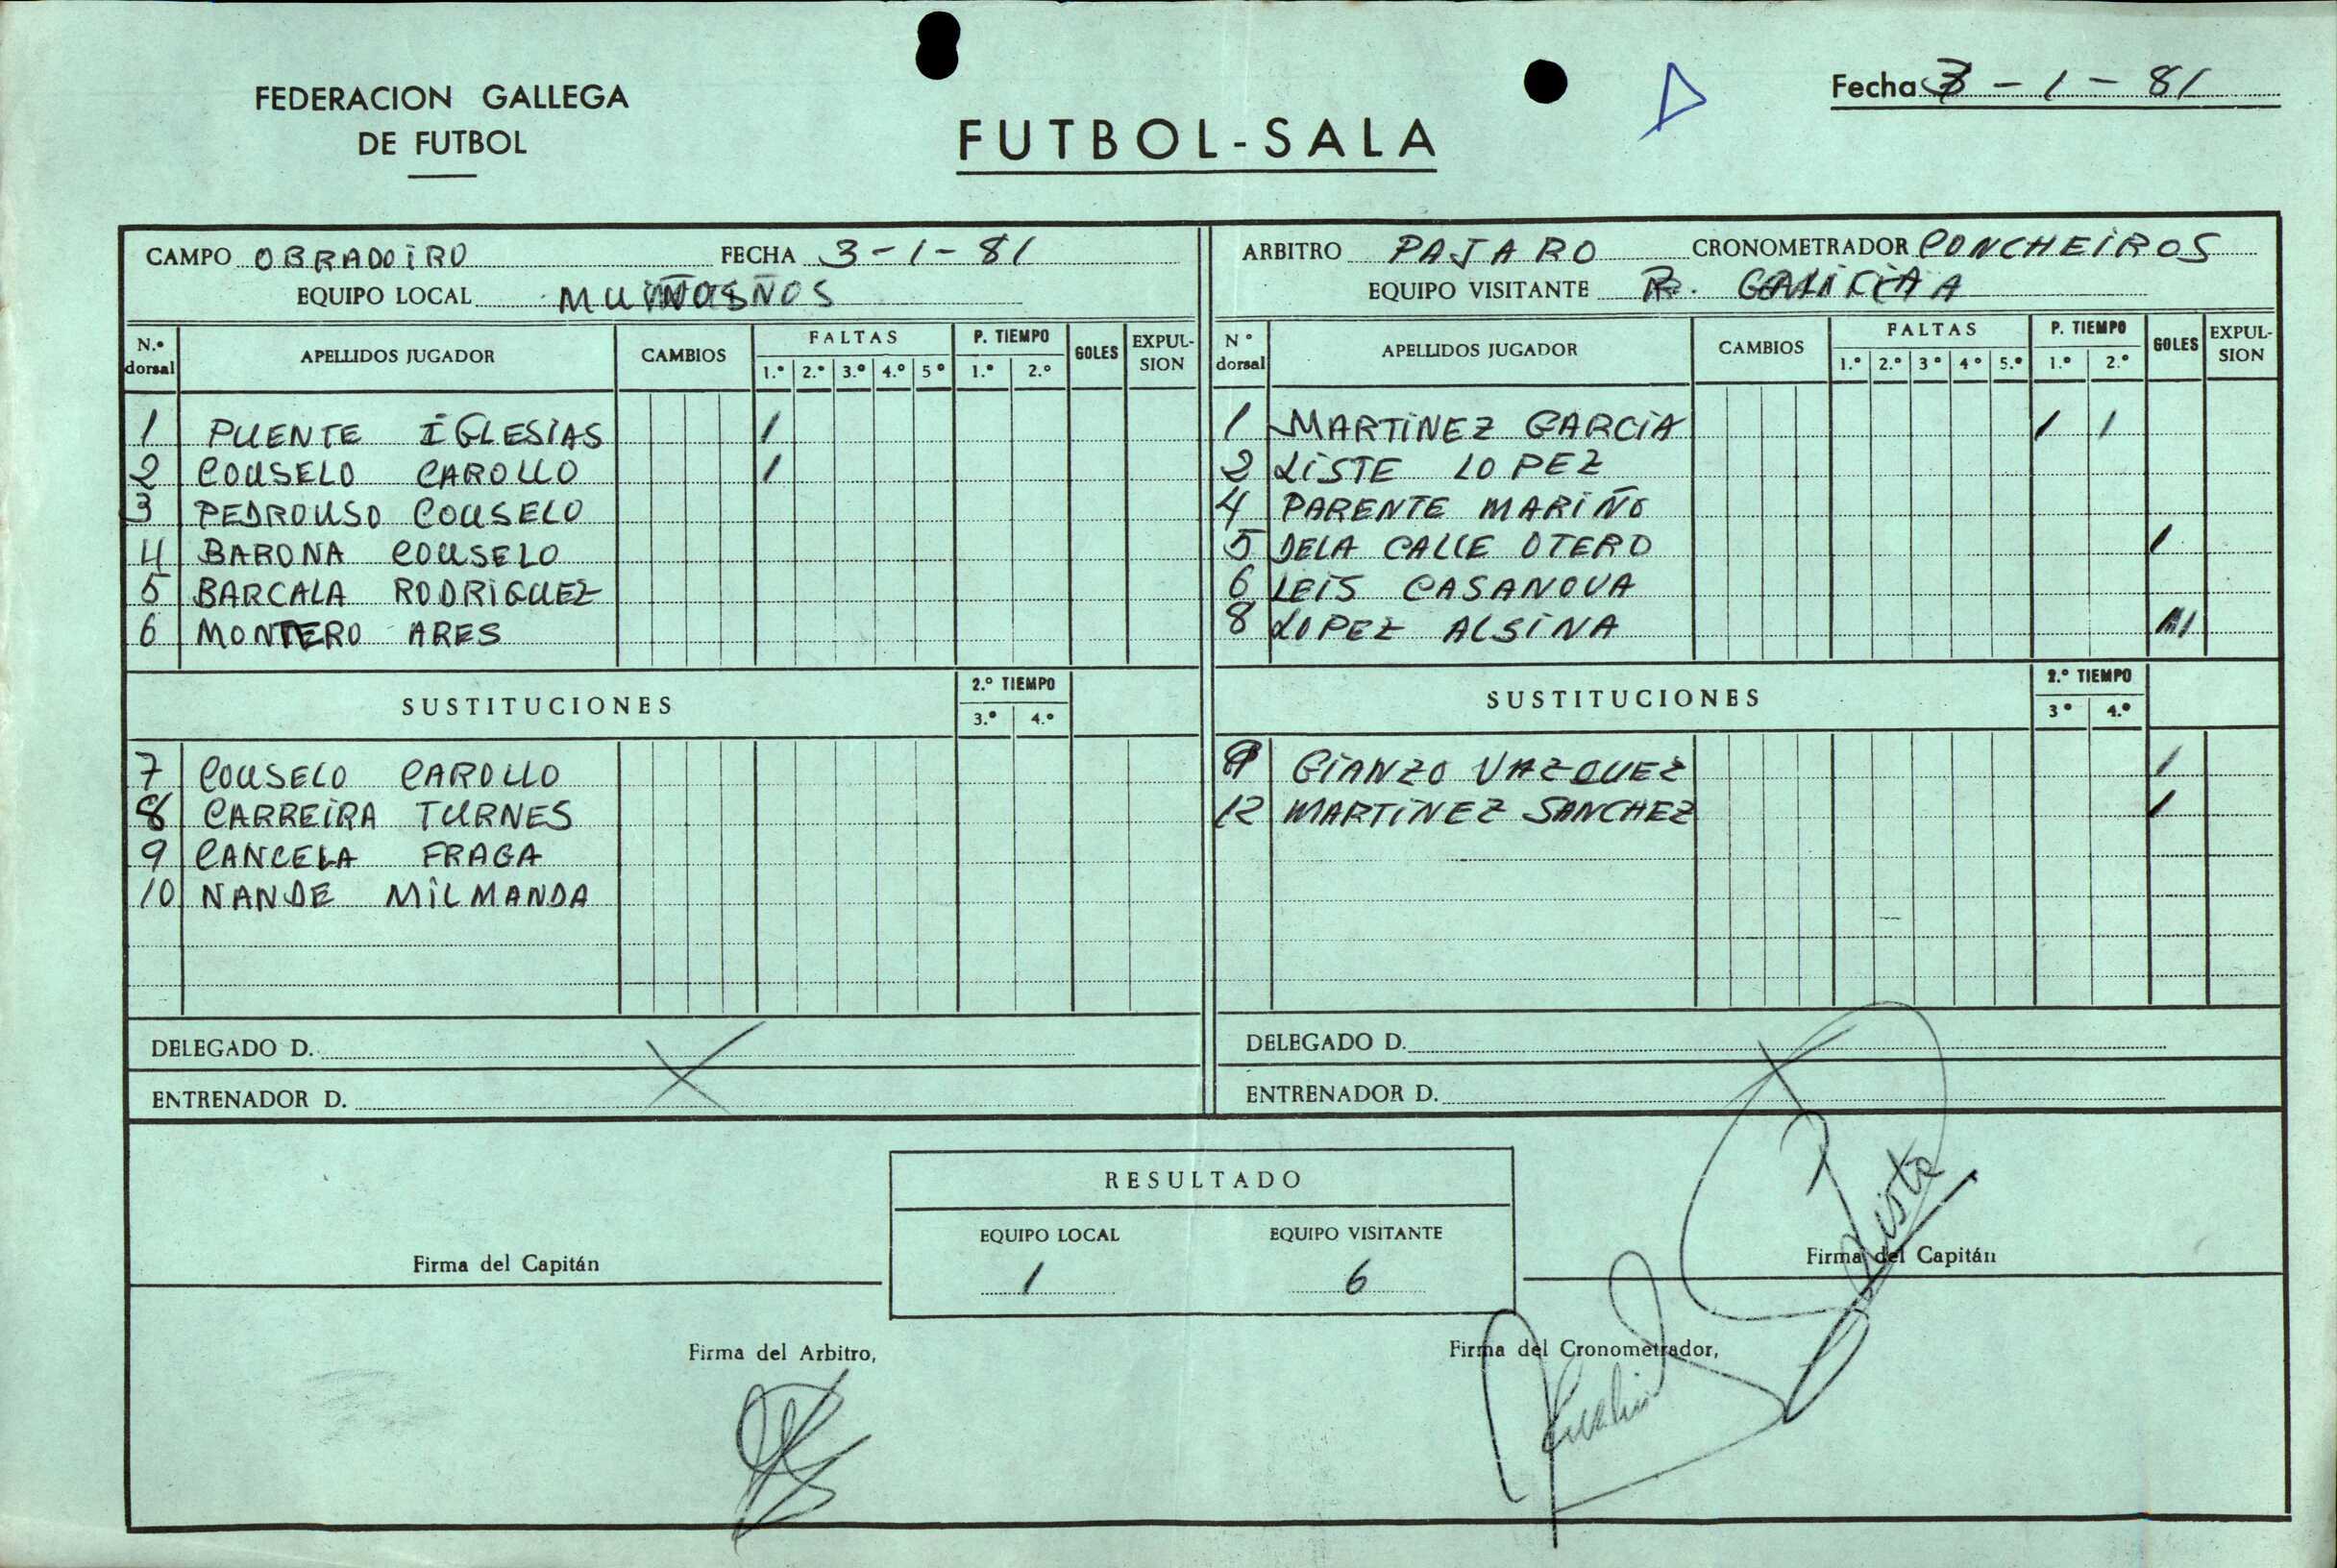 FEDERACION GALLEGA
DE FUTBOL
FUTBOL-SALA
Fecha 3-1-81
CAMPO OBRADOIRO FECHA 3-1-81
EQUIPO LOCAL
N.º dorsal APELLIDOS JUGADOR CAMBIOS FALTAS 1.º 2.º 3.º 4.º 5º P. TIEMPO 1.º 2.º GOLES EXPULSION
1 PUENTE IGLESIAS 1
2 COUSELO CAROLLO 1
3 PEDROUSO COUSELO
4 BARONA COUSELO
5 BARCALA RODRIGUEZ
6 MONTERO ARES
SUSTITUCIONES 2.º TIEMPO 3.º 4.º
7 COUSELO CAROLLO
8 CARREIRA TURNES
9 CANCELA FRAGA
10 NANDE MILMANDA
DELEGADO D.
ENTRENADOR D.
ARBITRO PAJARO CRONOMETRADOR CONCHEIROS
EQUIPO VISITANTE R. GALICIA
Nº dorsal APELLIDOS JUGADOR CAMBIOS FALTAS 1.º 2.º 3º 4º 5.º P. TIEMPO 1.º 2.º GOLES EXPULSION
1 MARTINEZ GARCIA 1 1
2 LISTE LOPEZ
4 PARENTE MARIÑO
5 DELA CALLE OTERO 1
6 LEIS CASANOVA
8 LOPEZ ALSINA
SUSTITUCIONES 2.º TIEMPO 3º 4.º
9 GIANZO VAZQUEZ 1
12 MARTINEZ SANCHEZ 1
DELEGADO D.
ENTRENADOR D.
RESULTADO
EQUIPO LOCAL EQUIPO VISITANTE
1 6
Firma del Capitán
Firma del Capitán
Firma del Arbitro,
Firma del Cronometrador,